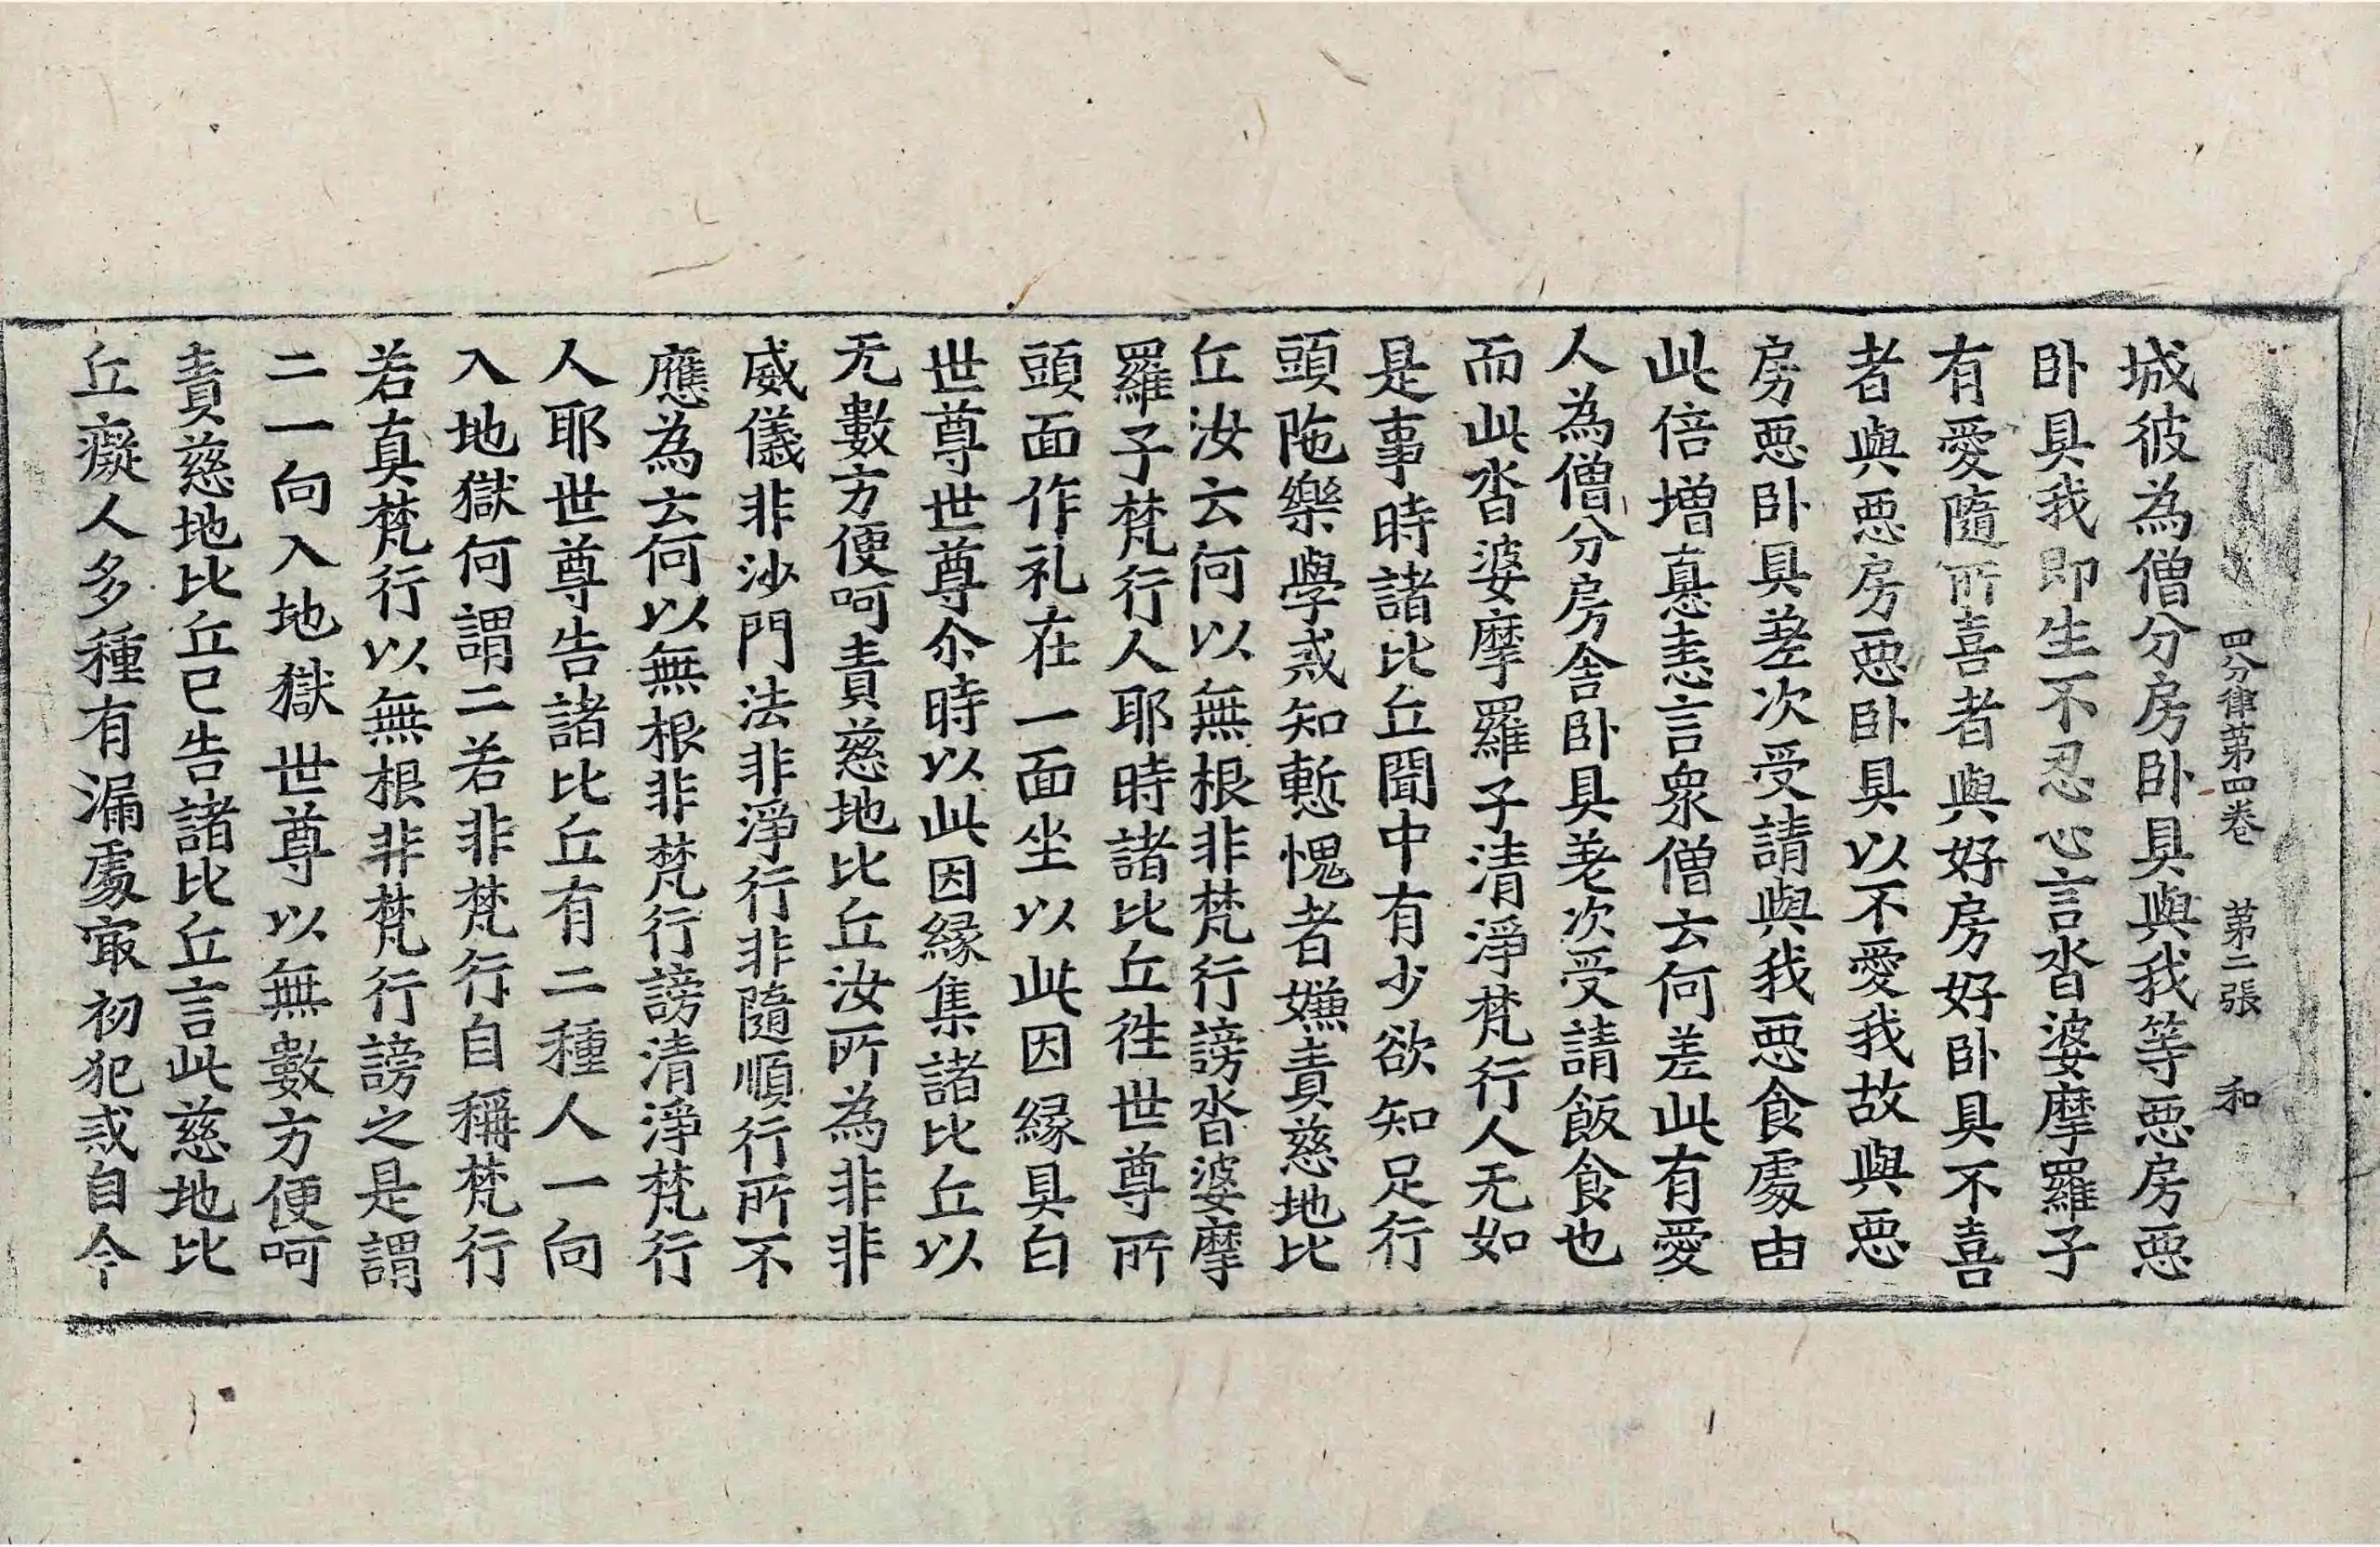 四分律第四卷 第二張 和
城彼為僧分房卧具與我等惡房惡
卧具我即生不忍心言沓婆摩羅子
有愛隨所喜者與好房好卧具不喜
者與惡房惡卧具以不愛我故與惡
房惡卧具差次受請與我惡食處由
此倍增恚言眾僧云何差此有愛
人為僧分房舍卧具差次受請飯食也
而此沓婆摩羅子清淨梵行人无如
是事時諸比丘聞中有少欲知足行
頭陁樂學戒知慙愧者嫌責慈地比
丘汝云何以無根非梵行謗沓婆摩
羅子梵行人耶時諸比丘往世尊所
頭面作礼在一面坐以此因緣具白
世尊世尊尒時以此因緣集諸比丘以
无數方便呵責慈地比丘汝所為非非
威儀非沙門法非淨行非隨順行所不
應為云何以無根非梵行謗清淨梵行
人耶世尊告諸比丘有二種人一向
入地獄何謂二若非梵行自稱梵行
若真梵行以無根非梵行謗之是謂
二一向入地獄世尊以無數方便呵
責慈地比丘已告諸比丘言此慈地比
丘癡人多種有漏處㝡初犯戒自今